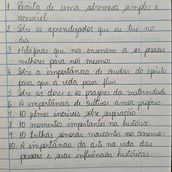 1. Receita de uma sobremesa simples e
acessível
2. Sobre os aprendizados que eu tive no
dia
3. Metáforas que nos ensinam a ser pessoas
melhores para nós mesmos
4. Sobre a importância de cuidar do espírito
para que a vida possa fluir
5. Sobre as dores e os prazeres da maternidade
6. A importância de cultivar amor próprio
7. 10 filmes incríveis sobre superação
8. 10 momentos importantes na história
9. 10 trilhas sonoras marcantes no cinema
10. A importância da arte na vida das
pessoas e suas influências históricas